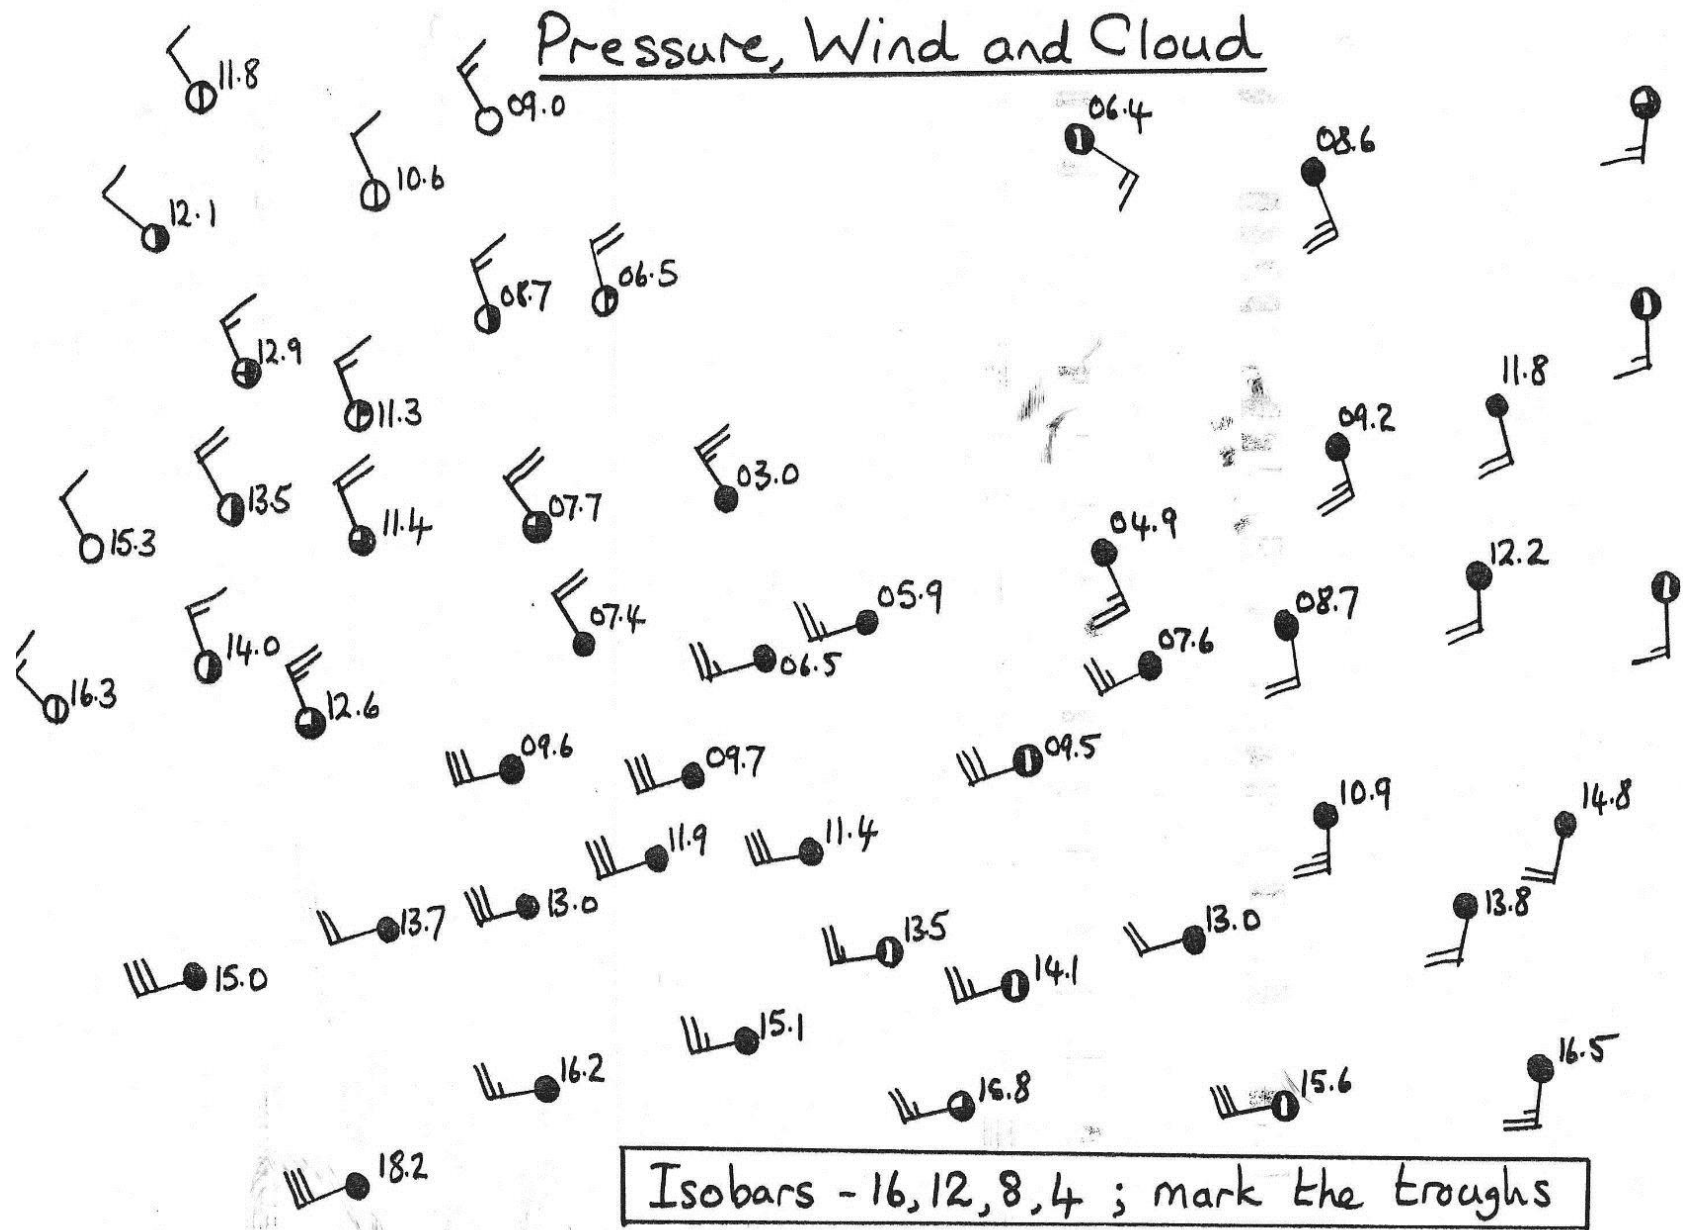 Pressure, Wind and Cloud
11.8
09.0
06.4
08.6
10.6
12.1
08.7
06.5
12.9
11.3
11.8
09.2
13.5
07.7
03.0
15.3
11.4
04.9
12.2
05.9
07.4
08.7
14.0
06.5
07.6
16.3
12.6
09.6
09.7
09.5
10.9
14.8
11.9
11.4
13.7
13.0
13.5
13.0
13.8
15.0
14.1
15.1
16.2
16.5
15.6
18.2
Isobars - 16, 12, 8, 4 ; mark the troughs